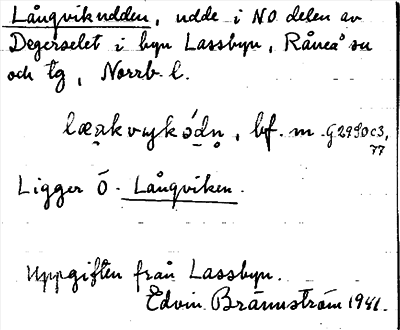 Långvikudden, udde i NO delen av
Degerselet i byn Lassbyn, Råneå sn
och tg, Norrb. l.
bf. m. G2990c3,
77
Ligger Ö. Långviken.
Uppgiften från Lassbyn.
Edvin Brännström 1941.